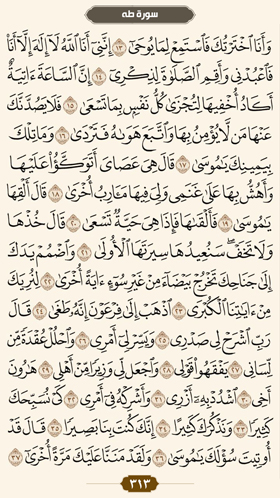 سورة طه
وَأَنَا ٱخْتَرْتُكَ فَٱسْتَمِعْ لِمَا يُوحَىٰٓ ١٣ إِنَّنِيٓ أَنَا ٱللَّهُ لَآ إِلَٰهَ إِلَّآ أَنَا۠
فَٱعْبُدْنِي وَأَقِمِ ٱلصَّلَوٰةَ لِذِكْرِيٓ ١٤ إِنَّ ٱلسَّاعَةَ ءَاتِيَةٌ
أَكَادُ أُخْفِيهَا لِتُجْزَىٰ كُلُّ نَفْسٍۭ بِمَا تَسْعَىٰ ١٥ فَلَا يَصُدَّنَّكَ
عَنْهَا مَن لَّا يُؤْمِنُ بِهَا وَٱتَّبَعَ هَوَىٰهُ فَتَرْدَىٰ ١٦ وَمَا تِلْكَ
بِيَمِينِكَ يَٰمُوسَىٰ ١٧ قَالَ هِيَ عَصَايَ أَتَوَكَّؤُا۟ عَلَيْهَا
وَأَهُشُّ بِهَا عَلَىٰ غَنَمِي وَلِيَ فِيهَا مَـَٔارِبُ أُخْرَىٰ ١٨ قَالَ أَلْقِهَا
يَٰمُوسَىٰ ١٩ فَأَلْقَىٰهَا فَإِذَا هِيَ حَيَّةٌ تَسْعَىٰ ٢٠ قَالَ خُذْهَا
وَلَا تَخَفْ سَنُعِيدُهَا سِيرَتَهَا ٱلْأُولَىٰ ٢١ وَٱضْمُمْ يَدَكَ
إِلَىٰ جَنَاحِكَ تَخْرُجْ بَيْضَآءَ مِنْ غَيْرِ سُوٓءٍ ءَايَةً أُخْرَىٰ ٢٢ لِنُرِيَكَ
مِنْ ءَايَٰتِنَا ٱلْكُبْرَى ٢٣ ٱذْهَبْ إِلَىٰ فِرْعَوْنَ إِنَّهُۥ طَغَىٰ ٢٤ قَالَ
رَبِّ ٱشْرَحْ لِي صَدْرِي ٢٥ وَيَسِّرْ لِيٓ أَمْرِي ٢٦ وَٱحْلُلْ عُقْدَةً مِّن
لِّسَانِي ٢٧ يَفْقَهُوا۟ قَوْلِي ٢٨ وَٱجْعَل لِّي وَزِيرًا مِّنْ أَهْلِي ٢٩ هَٰرُونَ
أَخِي ٣٠ ٱشْدُدْ بِهِۦٓ أَزْرِي ٣١ وَأَشْرِكْهُ فِيٓ أَمْرِي ٣٢ كَيْ نُسَبِّحَكَ
كَثِيرًا ٣٣ وَنَذْكُرَكَ كَثِيرًا ٣٤ إِنَّكَ كُنتَ بِنَا بَصِيرًا ٣٥ قَالَ قَدْ
أُوتِيتَ سُؤْلَكَ يَٰمُوسَىٰ ٣٦ وَلَقَدْ مَنَنَّا عَلَيْكَ مَرَّةً أُخْرَىٰٓ ٣٧
٣١٣